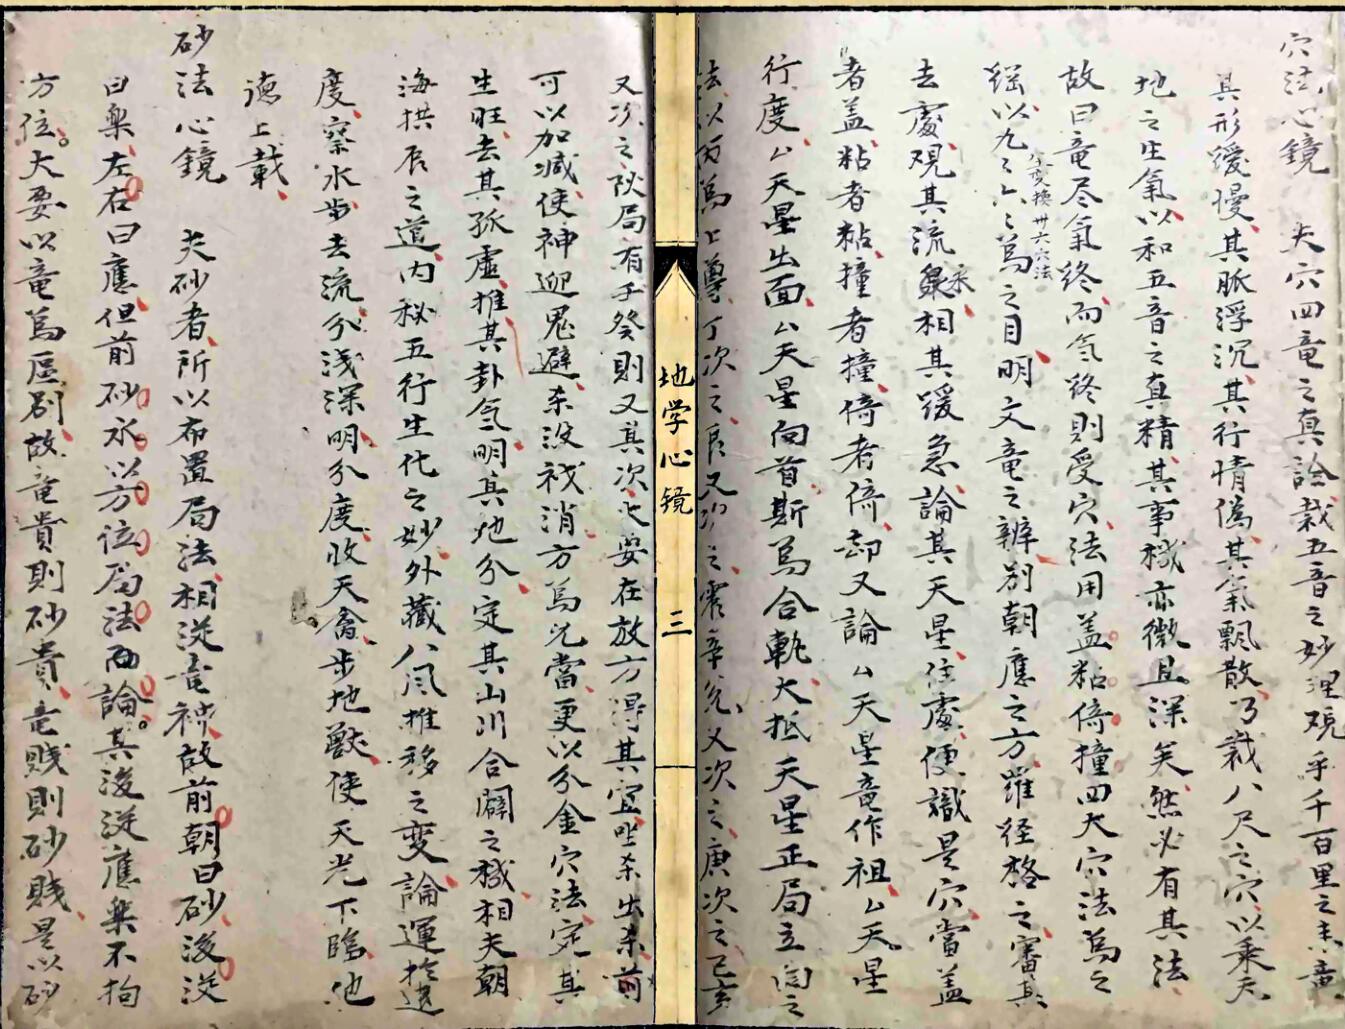 穴法心鏡　夫穴四竜之真訟裁五音之妙理覌乎千百里之来竜
其形缓慢其脈浮沉其行情偽其氣飄散乃裁八尺之穴以乗天
地之生氣以和五音之真精其事機亦微且深矣然必有其法
故曰竜尽氣終而气终則受穴法用盖粘倚撞四大穴法為之
綱以九九六六為之目明文竜之辨别朝應之方羅径格之審其
小变换卅六穴法
去處覌其流泉相其缓急論其天星住處便識是穴當盖
来
者盖粘者粘撞者撞倚者倚却又論以天星竜作祖以天星
行度以天星出面以天星向首斯為合軌大抵天星正局立向之
法以丙為上尊丁次之艮又次之震辛兑又次之庚次之己亥
又次之狄局有子癸則又其次大要在放方得其宜坐杀出杀前
可以加减使神迎鬼避杀没祲消方為允當更以分金穴法定其
生旺去其孤虚推其卦气明其地分定其山川合闢之機相夫朝
海拱辰之道内秘五行生化之妙外藏八风推移之变論運於建
度察水步去流分浅深明分度收天禽步地獸使天光下臨地
德上載
砂法心鏡　夫砂者所以布置局法相従竜神故前朝曰砂後従
曰樂左右曰應但前砂水以方位局法而論其後従應樂不拘
方位大要以竜為區别故竜貴則砂貴竜贱則砂贱是以砂
地学心镜
三